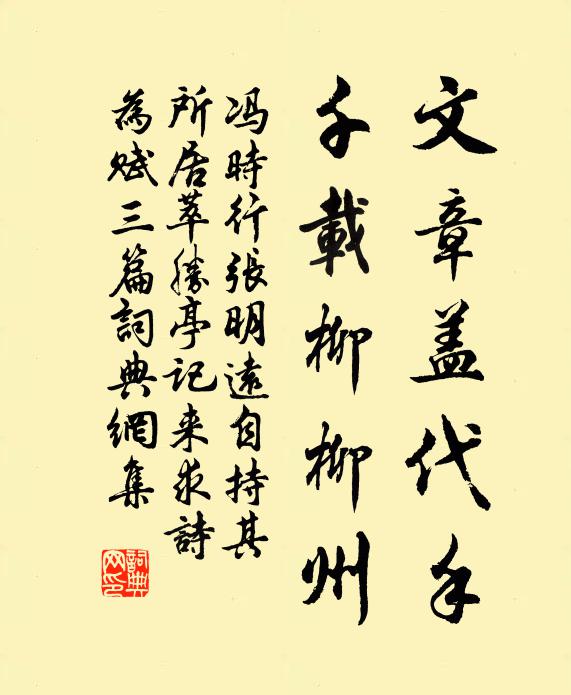 文章盖代手
千載柳柳州
冯時行張明遠自持其
所居萃勝亭記来求詩
為赋三篇詞典網集
詞典
网印